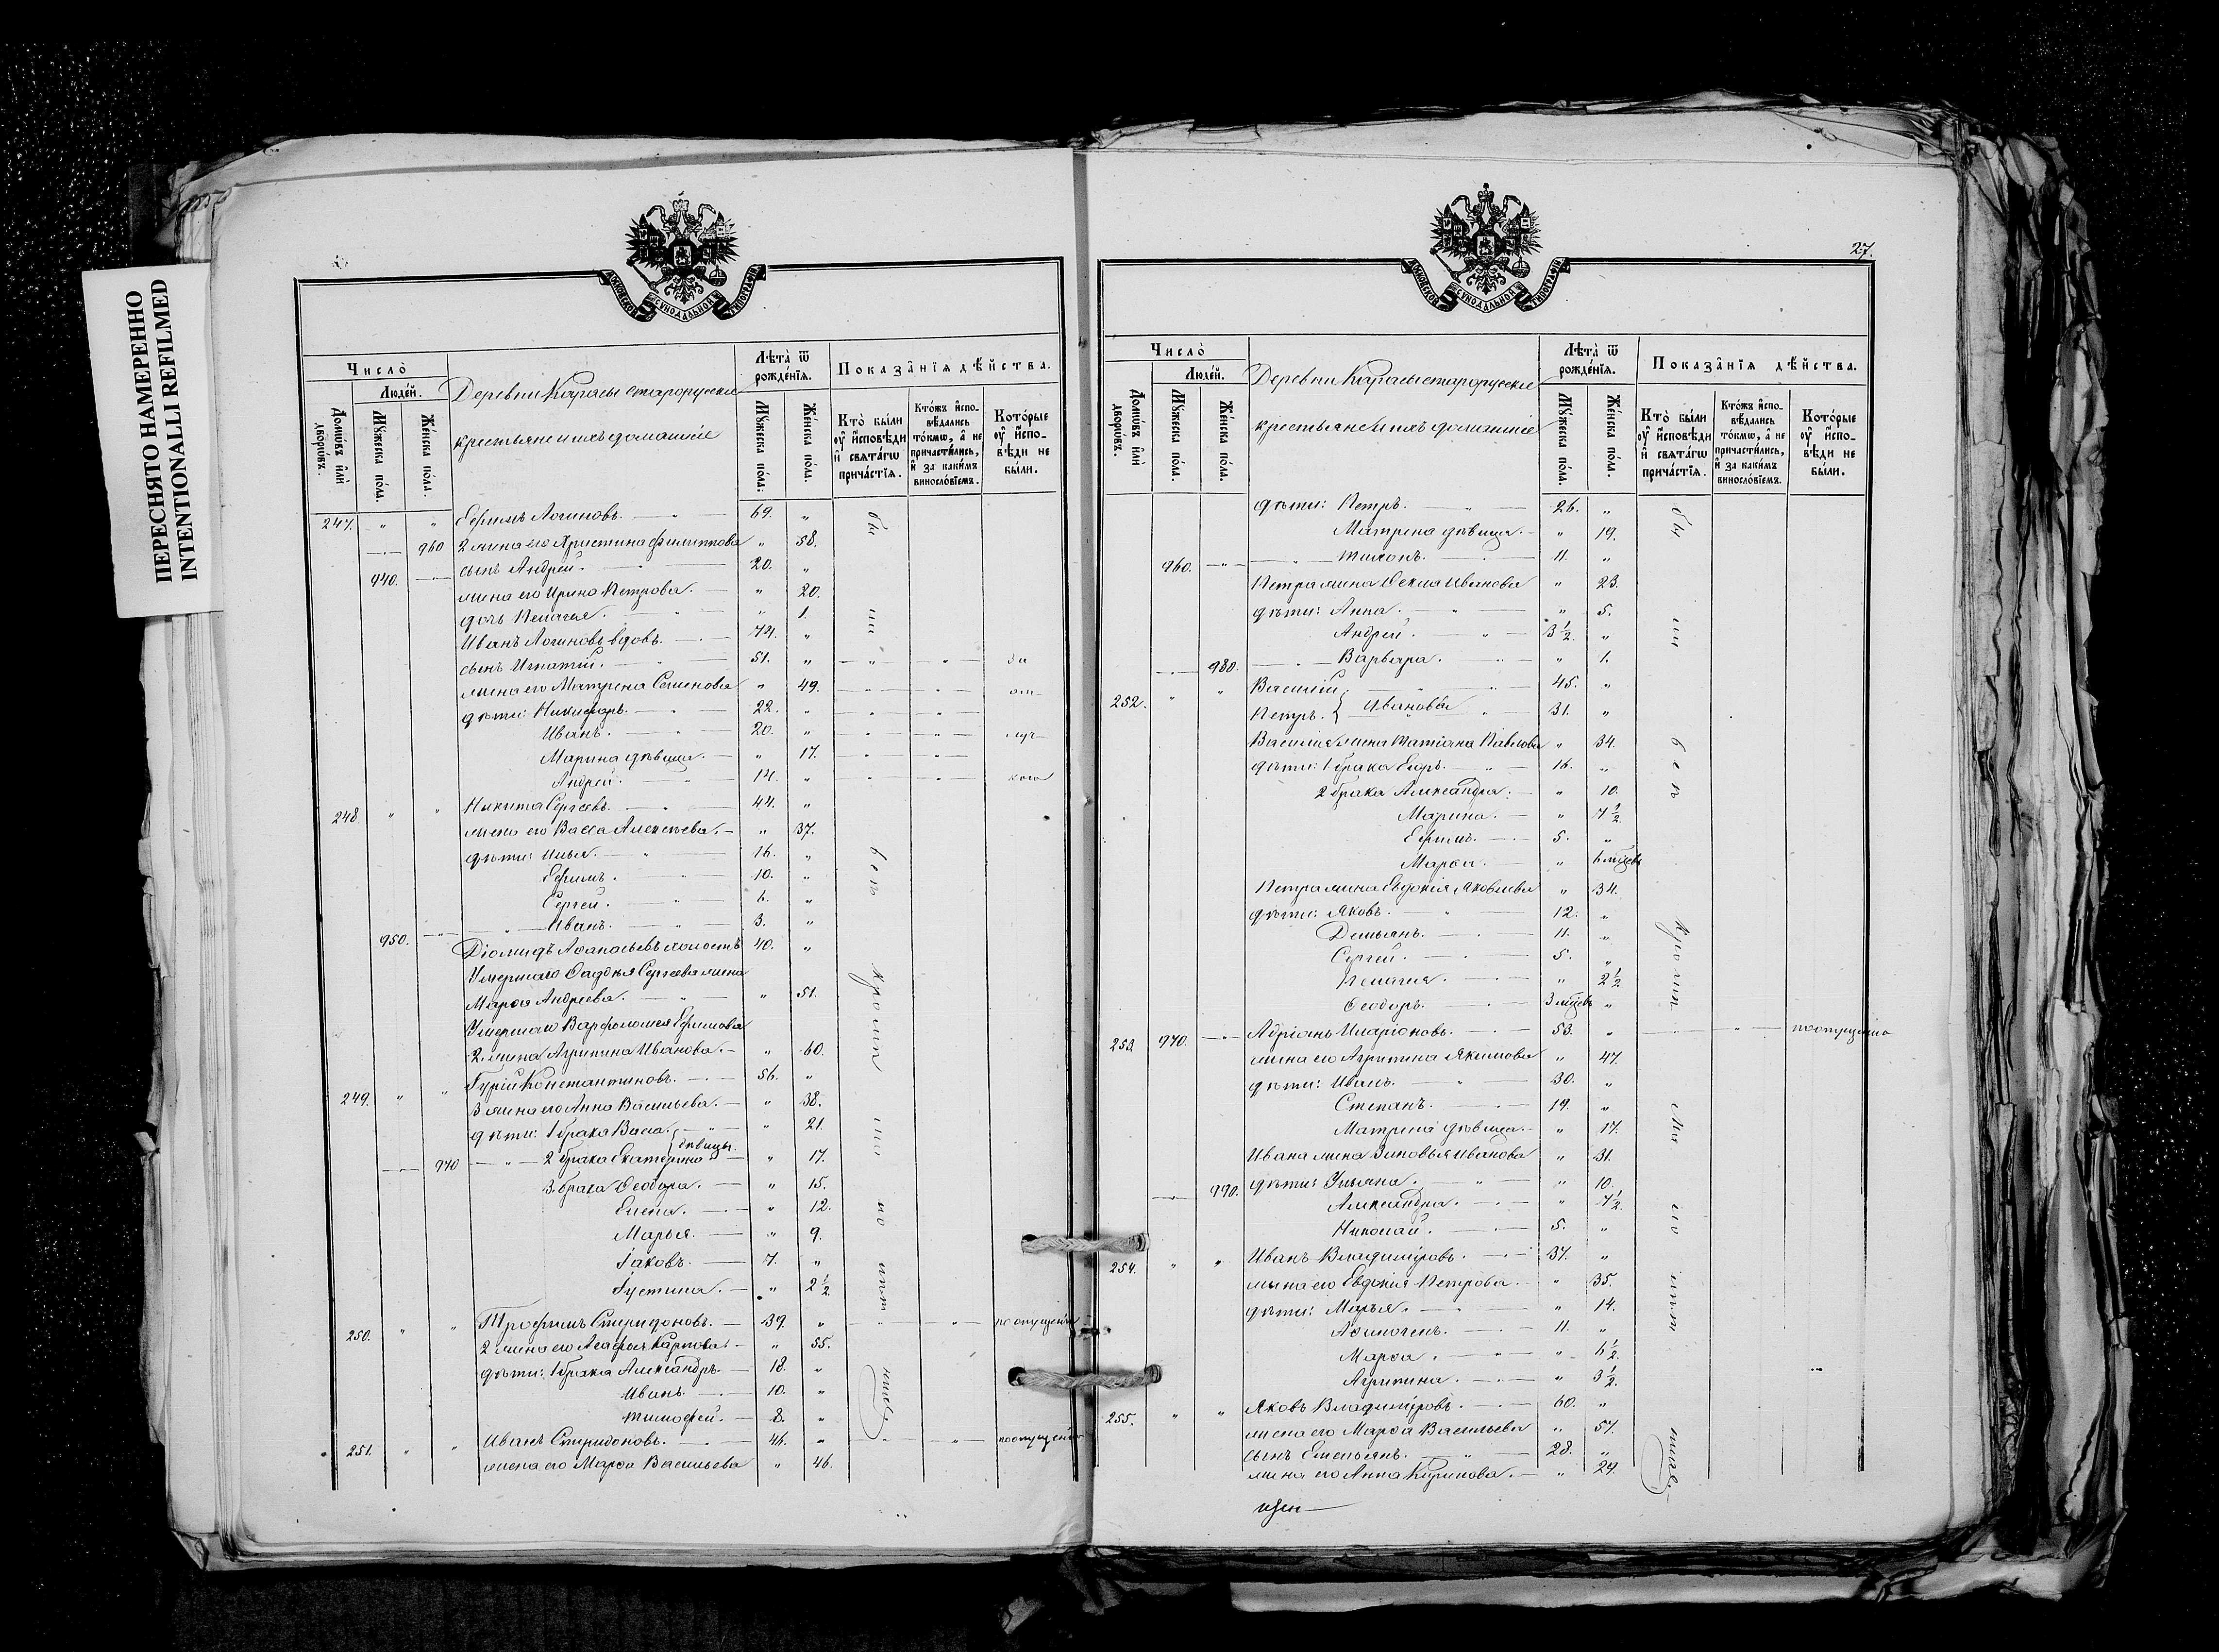 ПЕРЕСНЯТО НАМЕРЕННО
INTENTIONALLI REFILMED
МОСКОВСКОЙ СѴНОДАЛЬНОЙ ТИПОГРАФІИ
Число̀
Людей.
Домѡвъ или дворѡвъ.
Мꙋжеска пола.
Женска пола.
Деревни Карасы старорусскіе
крестьяне и ихъ домашніе
Лѣта̀ ѿ рожденїѧ.
Мꙋжеска пола.
Женска пола.
Показанїѧ дѣйства.
Кто̀ были оу исповѣди и свѧтагѡ причастїѧ.
Ктожъ исповѣдались токмѡ, а не причастились, и за какимъ винословїемъ.
Которые оу исповѣди не были.
247. " " Ефимъ Логиновъ. 69. " бы
960 2 жена его Христина Филиппова " 58.
940. сынъ Андрей. 20. "
жена его Ирина Петрова. " 20.
дочь Пелагея. " 1. ли
Иванъ Логиновъ вдовъ. 74. "
сынъ Игнатій. 51. " За
жена его Матрена Семенова " 49. от-
дѣти: Никифоръ. 22. "
Иванъ. 20. " луч-
Марина дѣвица. " 17.
Андрей. 14. " кою
248. " " Никита Сергѣевъ. 44. "
жена его Васса Алексѣева. " 37.
дѣти: Илья. 16. " всѣ
Ефимъ. 10. "
Сергей. 6. "
950. Иванъ. 3. "
Діомидъ Аѳанасьевъ холостъ 40. "
Умершаго Ѳаддея Сергѣева жена кромѣ
Марѳа Андреева. " 51.
Умершаго Варфоломея Ефимова
2 жена Агрипина Иванова. " 60.
249. " " Гурій Константиновъ. 56. "
3 жена его Анна Васильева. " 38.
дѣти: 1 брака Васса. " 21.
970 2 брака Екатерина дѣвицы. " 17.
3 брака Ѳеодора. " 15.
Елена. " 12. по
Марья. " 9.
Іаковъ. 7. "
Іустина. " 2½
250. " " Трофимъ Спиридоновъ. 39. " по опущенію
2 жена его Агафья Карпова. " 55.
дѣти: 1 брака Александръ. 18. "
Иванъ. 10. "
Тимофей. 8. "
251. " " Иванъ Спиридоновъ. 46. " по опущенію
жена его Марѳа Васильева " 46.
27.
МОСКОВСКОЙ СѴНОДАЛЬНОЙ ТИПОГРАФІИ
Число̀
Людей.
Домѡвъ или дворѡвъ.
Мꙋжеска пола.
Женска пола.
Деревни Карасы старорусскіе
крестьяне и ихъ домашніе
Лѣта̀ ѿ рожденїѧ.
Мꙋжеска пола.
Женска пола.
Показанїѧ дѣйства.
Кто̀ были оу исповѣди и свѧтагѡ причастїѧ.
Ктожъ исповѣдались токмѡ, а не причастились, и за какимъ винословїемъ.
Которые оу исповѣди не были.
дѣти: Петръ. 26. " бы
Матрена дѣвица. " 19.
960. Тихонъ. 11. "
Петра жена Ѳекла Иванова " 23.
дѣти: Анна. " 5.
Андрей. 3½. " ли
980. Варвара. " 1.
252. " " Василій 45. "
Петръ. } Ивановы 31. "
Василія жена Татіана Павлова " 34.
дѣти: 1 брака Егоръ. 16. " всѣ
2 брака Александра. " 10.
Марина. " 7½
Ефимъ. 5. "
Марѳа. " 6 мѣсяц.
Петра жена Евдокія Яковлева " 34.
дѣти: Яковъ. 12. " кромѣ
Демьянъ. 11. "
Сергей. 5. "
Пелагея. " 2½
Ѳеодоръ. 3 мѣсяц. "
253. 970. Адріанъ Иларіоновъ. 53. " по опущенію
жена его Агрипина Якимова " 47.
дѣти: Иванъ. 30. "
Степанъ. 19. "
Матрена дѣвица. " 17.
Ивана жена Зиновья Иванова " 31.
990. дѣти: Ульяна. " 10.
Александра. " 7½.
Николай. 5. "
254. " " Иванъ Владиміровъ. 37. "
жена его Евдокія Петрова. " 35.
дѣти: Марья. " 14.
Аѳиногенъ. 11. "
Марѳа. " 6½.
Агрипина. " 3½.
255. " " Яковъ Владиміровъ. 60. "
жена его Марѳа Васильева " 57.
сынъ Емельянъ. 28. "
жена его Анна Кирилова. " 29.